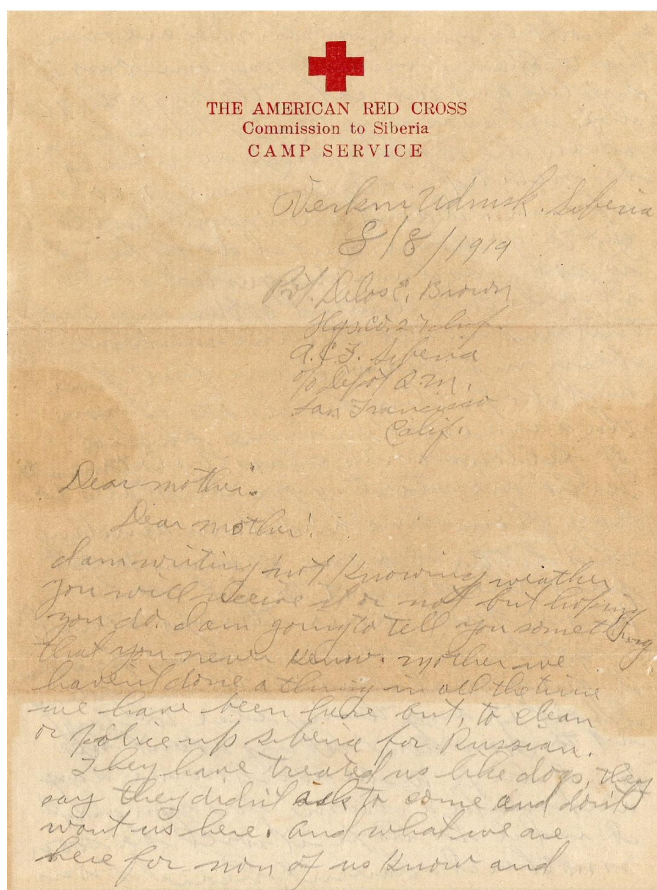 THE AMERICAN RED CROSS
Commission to Siberia
CAMP SERVICE
Verkni Udnisk. Siberia
8/8/1919
Pvt. Delos E. Brown
Hqs. Co. 27th Inf.
A.E.F. Siberia
c/o Depot Q.M.
San Francisco
Calif.
Dear mother.
Dear mother!
I am writing not knowing weather
you will receive it or not but hoping
you do. I am going to tell you something
that you never knew. mother we
haven't done a thing in all the time
we have been here but, to clean
or police up siberia for Russian.
They have treated us like dogs, they
say they didn't ask to come and don't
want us here. and what we are
here for non of us know and